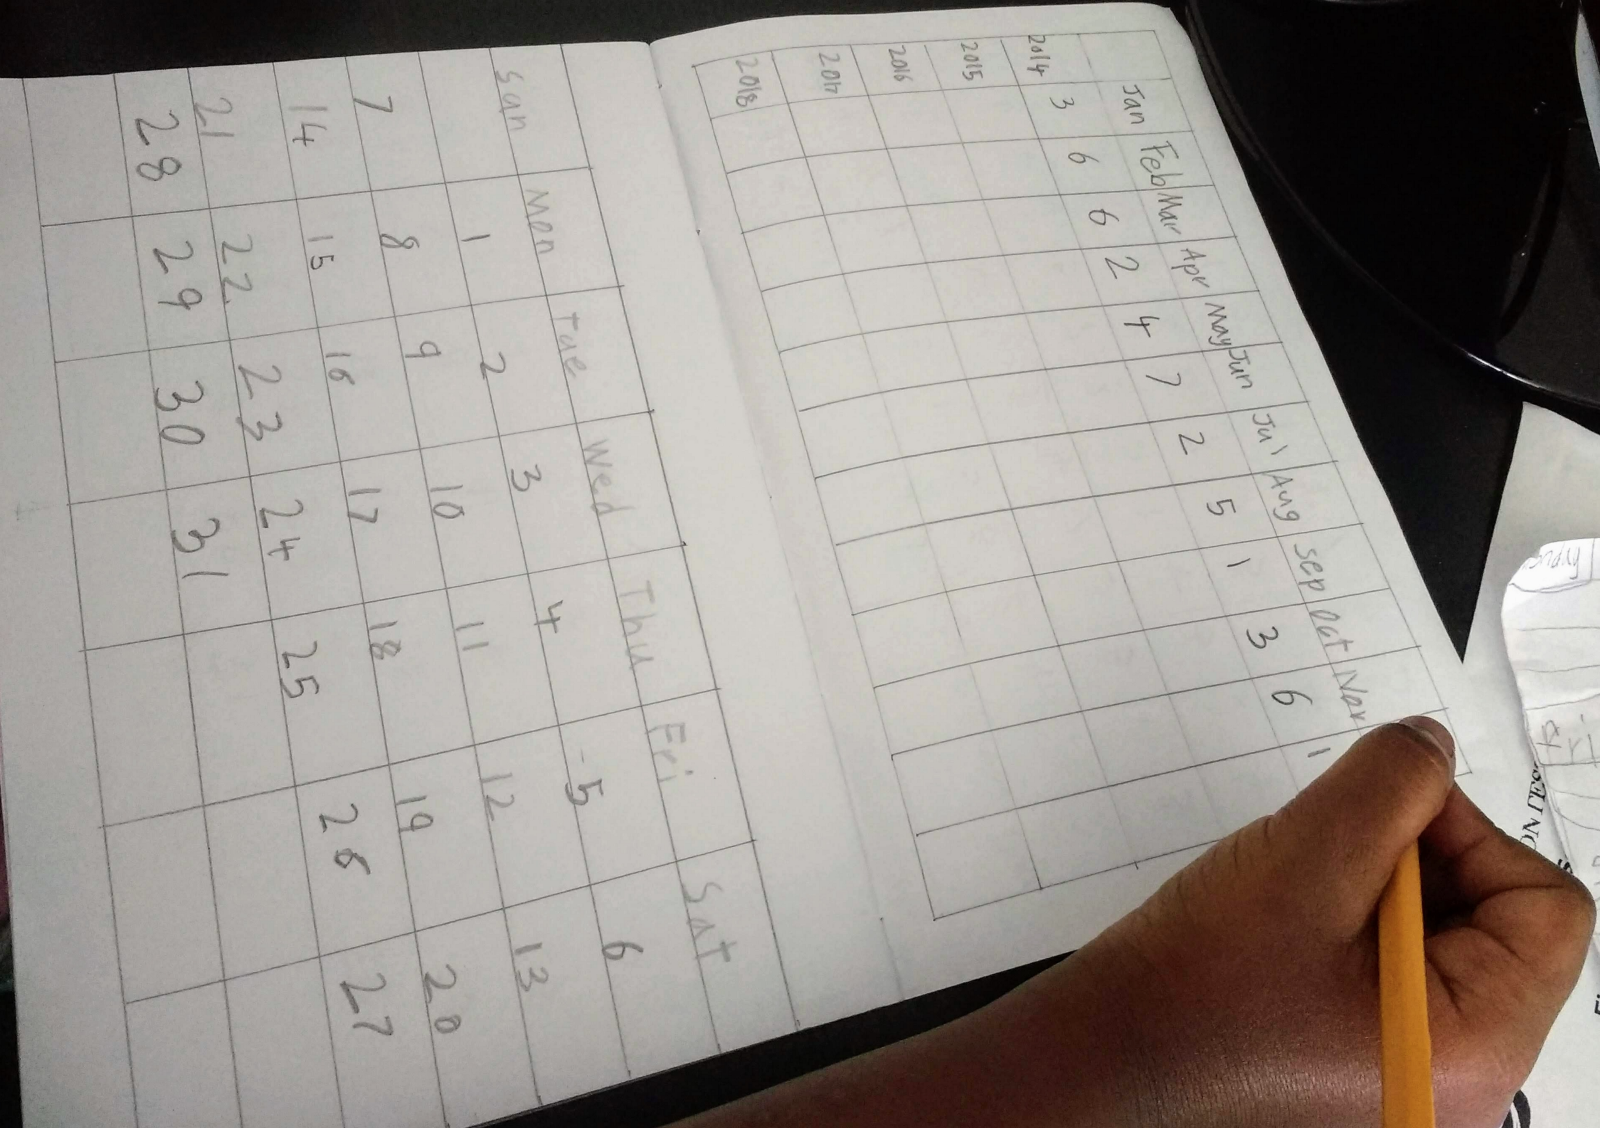 Jan Feb Mar Apr May Jun Jul Aug Sep Oct Nov
2014 3 6 6 2 4 7 2 5 1 3 6 1
2015
2016
2017
2018
Sun Mon Tue Wed Thu Fri Sat
1 2 3 4 5 6
7 8 9 10 11 12 13
14 15 16 17 18 19 20
21 22 23 24 25 26 27
28 29 30 31